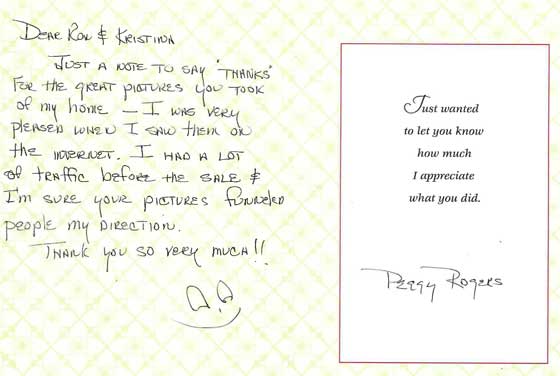 Dear Ron & Kristina
Just a note to say "Thanks"
for the great pictures you took
of my home – I was very
pleased when I saw them on
the internet. I had a lot
of traffic before the sale &
I'm sure your pictures funneled
people my direction.
Thank you so very much!!
Just wanted
to let you know
how much
I appreciate
what you did.
Peggy Rogers